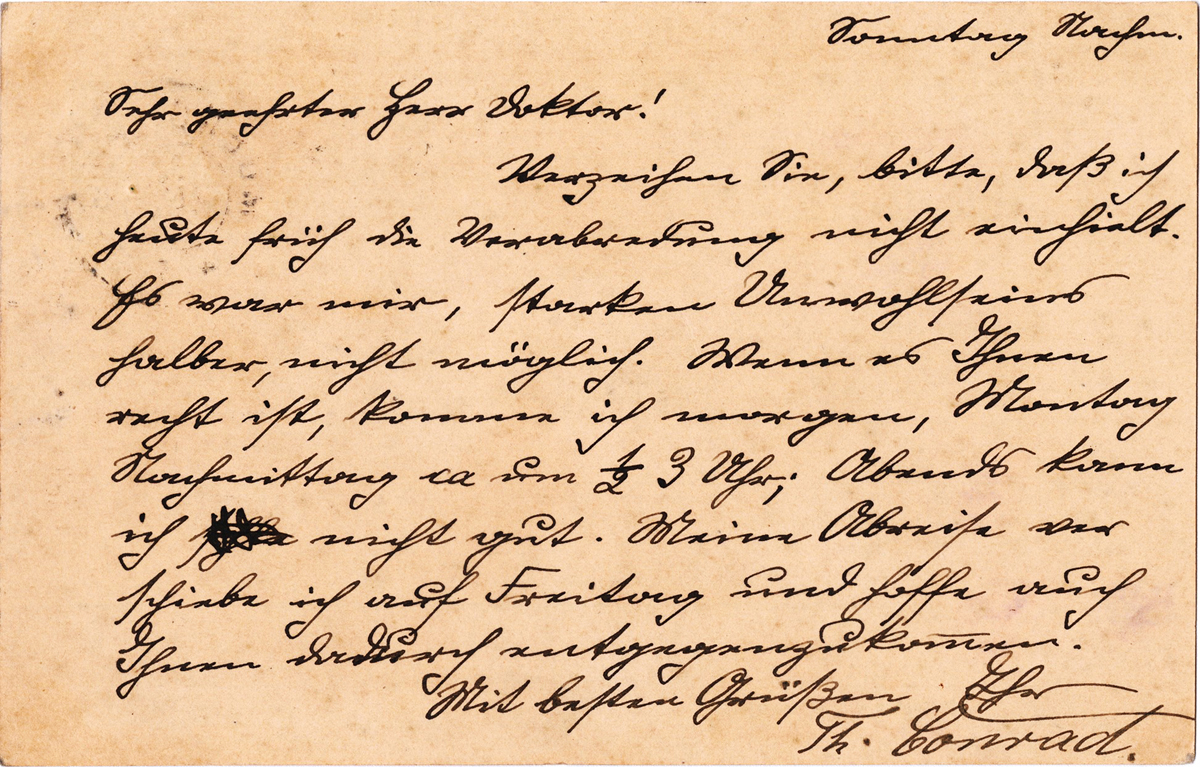 Sonntag Nachm.
Sehr geehrter Herr Doktor!
Verzeihen Sie, bitte, daß ich
heute früh die Verabredung nicht einhielt.
Es war mir, starken Unwohlseins
halber, nicht möglich. Wenn es Ihnen
recht ist, komme ich morgen, Montag
Nachmittag ca um ½ 3 Uhr; Abends kann
ich nicht gut. Meine Abreise ver
schiebe ich auf Freitag und hoffe auch
Ihnen dadurch entgegenzukom̅en.
Mit besten Grüßen Ihr
Th. Conrad.